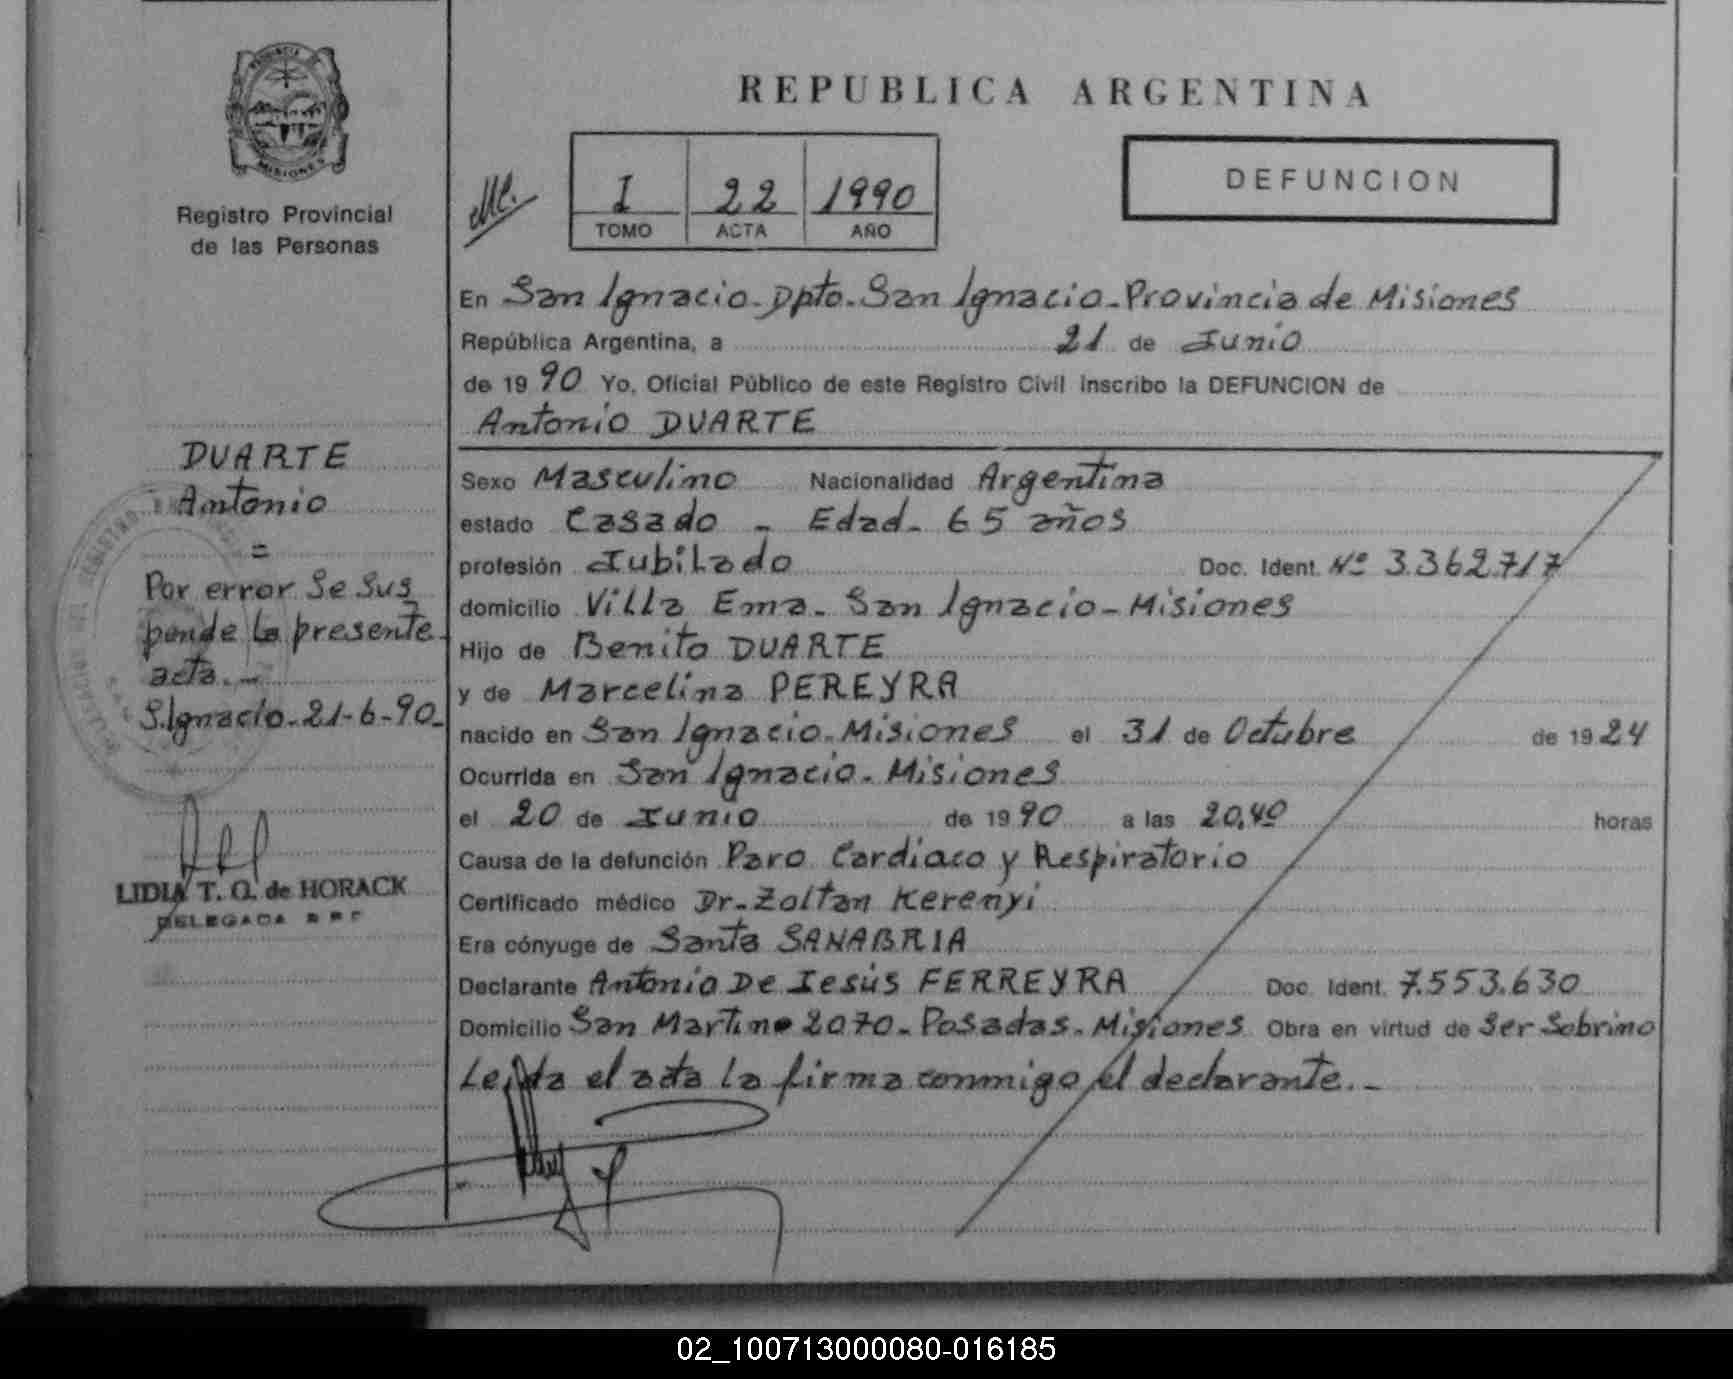 PROVINCIA DE
MISIONES
Registro Provincial
de las Personas
DUARTE
Antonio
=
Por error se sus
pende la presente
acta.-
S.Ignacio-21-6-90-
LIDIA T. O. de HORACK
DELEGADA
REPUBLICA ARGENTINA
I 22 1990
TOMO ACTA AÑO
DEFUNCION
En San Ignacio-Dpto-San Ignacio-Provincia de Misiones
República Argentina, a 21 de Junio
de 1990 Yo, Oficial Público de este Registro Civil inscribo la DEFUNCION de
Antonio DUARTE
Sexo Masculino Nacionalidad Argentina
estado Casado - Edad- 65 años
profesión Jubilado Doc. Ident. Nº 3.362717
domicilio Villa Ema- San Ignacio-Misiones
Hijo de Benito DUARTE
y de Marcelina PEREYRA
nacido en San Ignacio-Misiones el 31 de Octubre de 1924
Ocurrida en San Ignacio-Misiones
el 20 de Junio de 1990 a las 20,40 horas
Causa de la defunción Paro Cardiaco y Respiratorio
Certificado médico Dr-Zoltan Kerenyi
Era cónyuge de Santa SANABRIA
Declarante Antonio De Jesús FERREYRA Doc. Ident. 7.553.630
Domicilio San Martin 2070-Posadas-Misiones Obra en virtud de Ser Sobrino
Leida el acta la firma conmigo el declarante.-
02_100713000080-016185